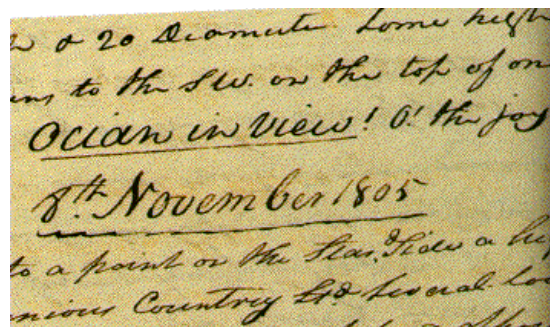 & 20 Diamuter Some high
ins to the S W. on the top of on
Ocian in view! O! the joy
8th November 1805
to a point on the Stard. Side a
Countrey